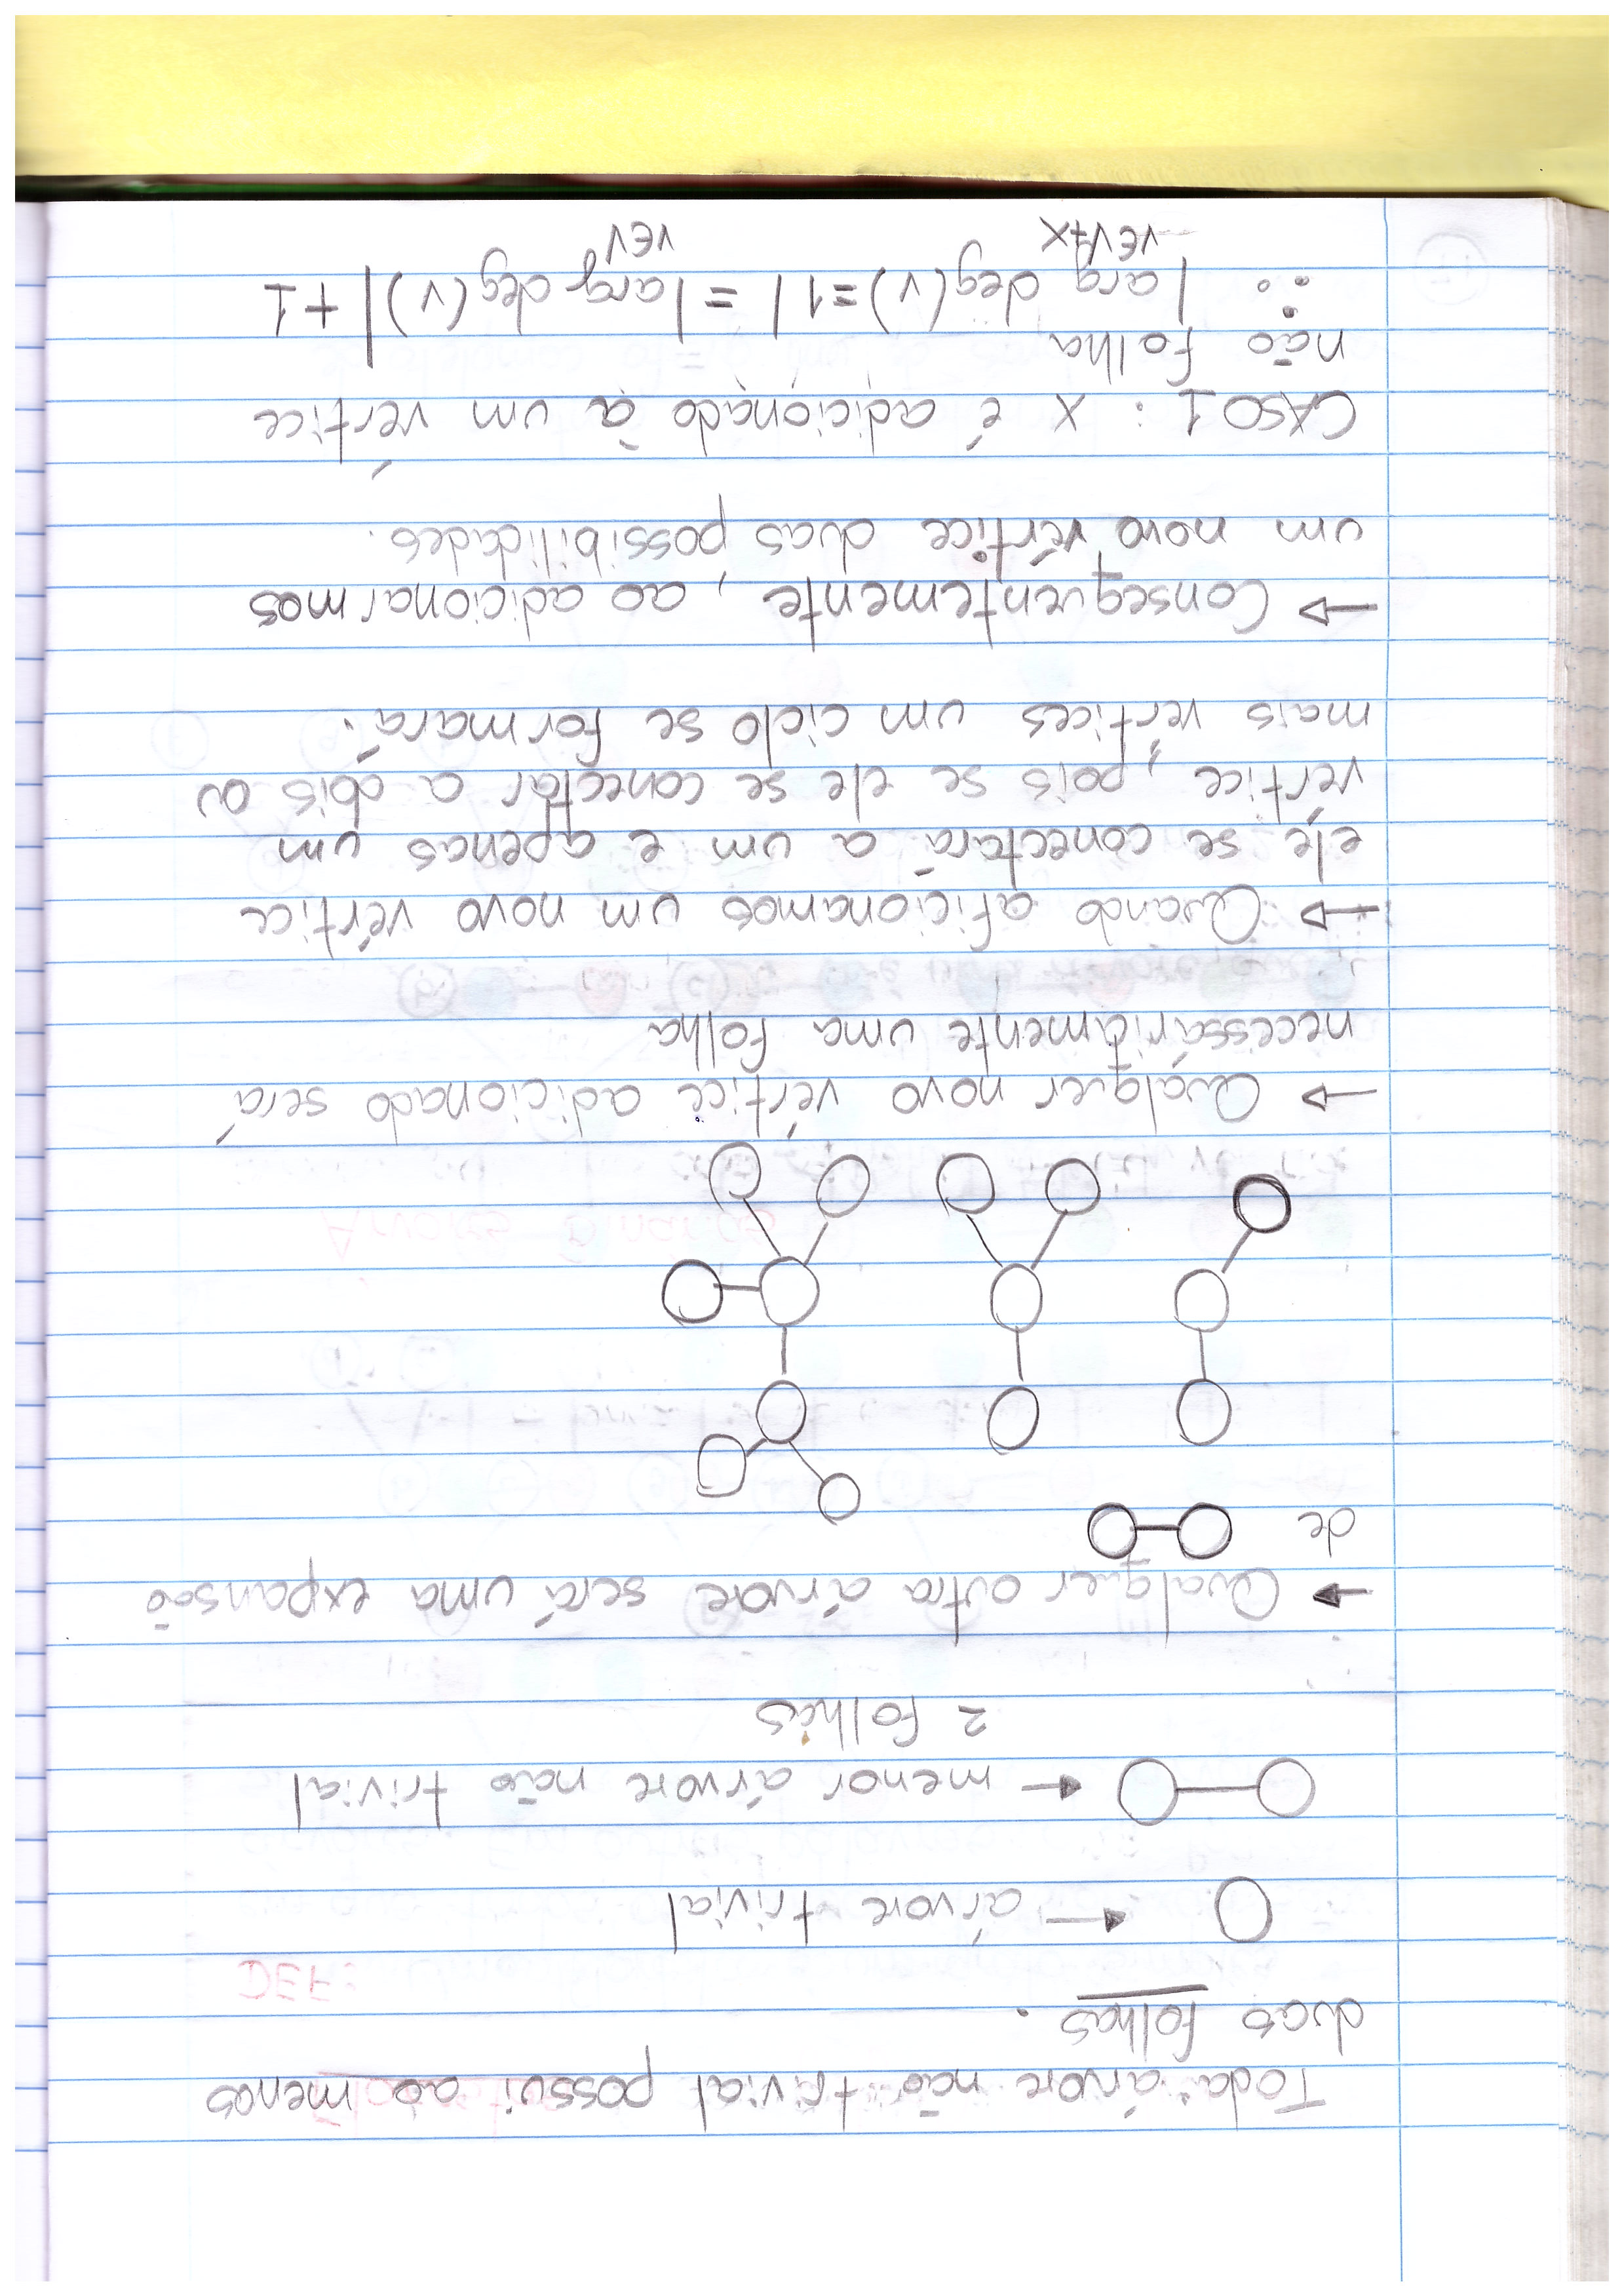 Toda árvore não trivial possui ao menos
duas folhas.
← árvore trivial
← menor árvore não trivial
2 folhas
→ Qualquer outra árvore será uma expansão
de
→ Qualquer novo vértice adicionado será
necessáriamente uma folha
→ Quando aficionamos um novo vértice
ele se conectará a um e apenas um
vértice, pois se ele se conectar a dois ou
mais vértices um ciclo se formará.
→ Consequentemente, ao adicionarmos
um novo vértice duas possibilidades.
CASO 1: X é adicionado à um vértice
não folha
∴ |arg deg(v)=1| = |arg deg(v)| + 1
v∈V+x v∈V